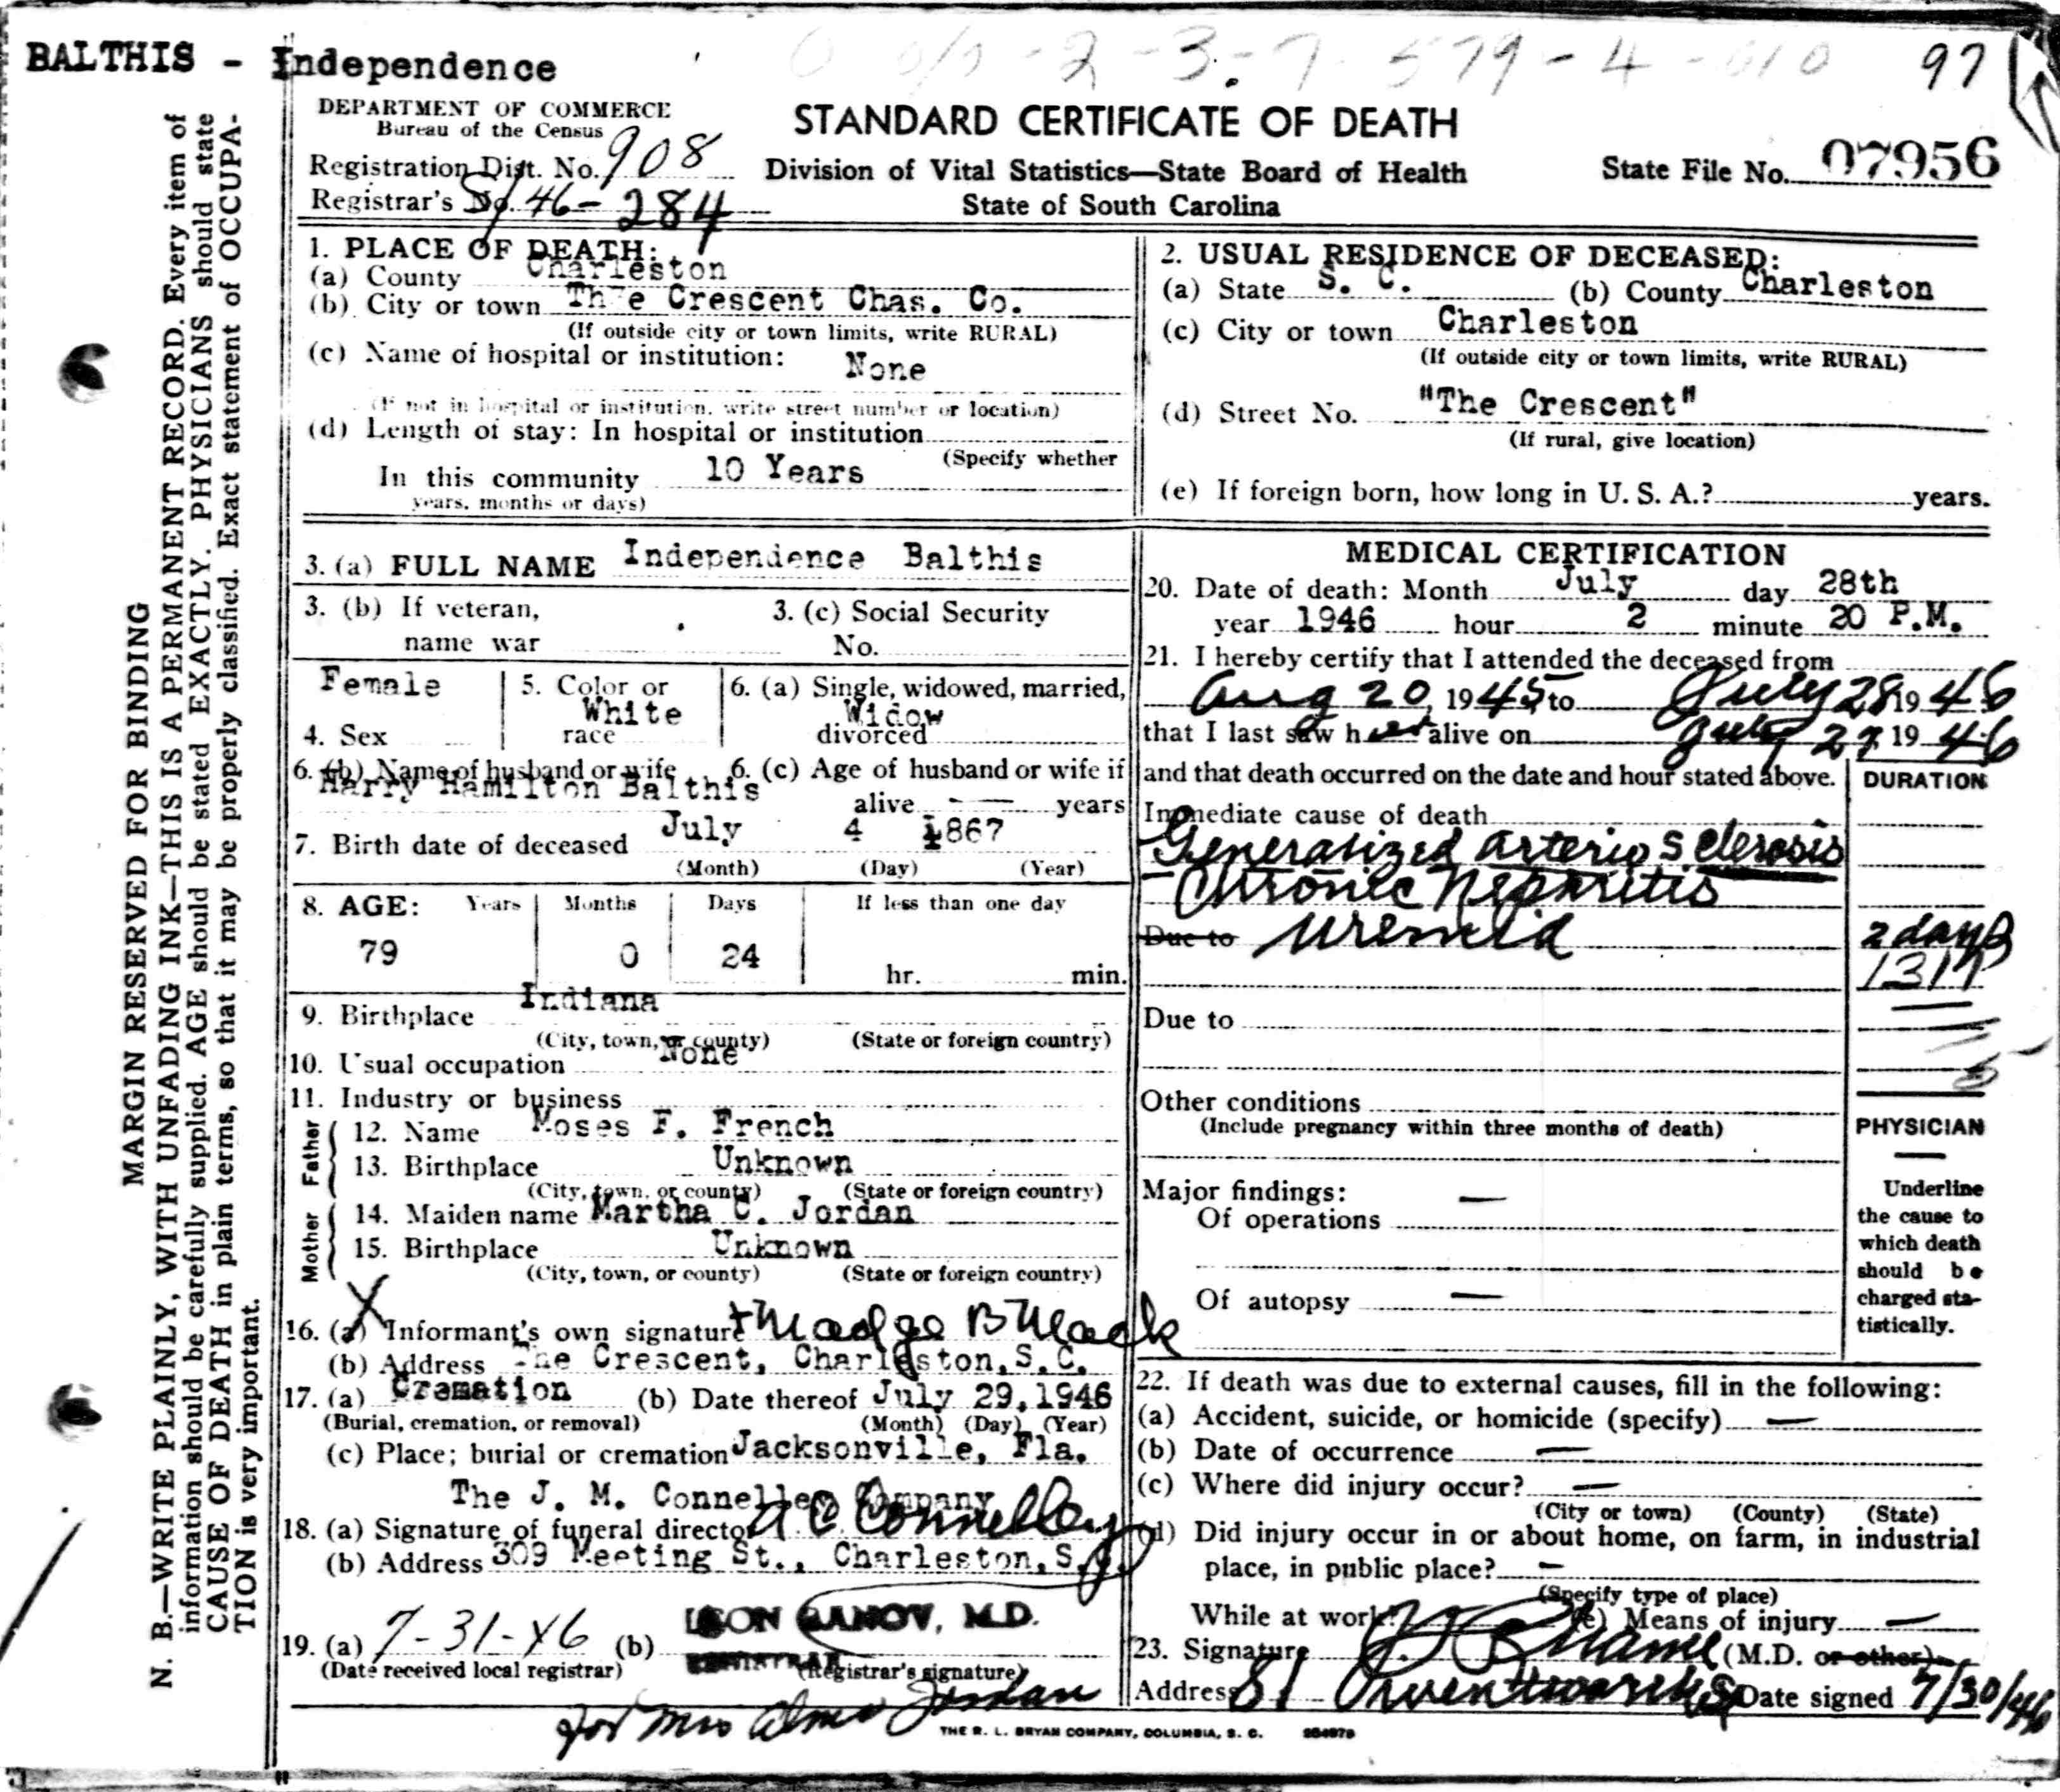 BALTHIS - Independence
97
DEPARTMENT OF COMMERCE
Bureau of the Census
Registration Dist. No. 908
Registrar's No. 46-284
STANDARD CERTIFICATE OF DEATH
Division of Vital Statistics—State Board of Health
State of South Carolina
State File No. 07956
MARGIN RESERVED FOR BINDING
N. B.—WRITE PLAINLY, WITH UNFADING INK—THIS IS A PERMANENT RECORD. Every item of
information should be carefully supplied. AGE should be stated EXACTLY. PHYSICIANS should state
CAUSE OF DEATH in plain terms, so that it may be properly classified. Exact statement of OCCUPA-
TION is very important.
1. PLACE OF DEATH:
(a) County Charleston
(b) City or town The Crescent Chas. Co.
(If outside city or town limits, write RURAL)
(c) Name of hospital or institution:
None
(If not in hospital or institution, write street number or location)
(d) Length of stay: In hospital or institution
(Specify whether
In this community 10 Years
years, months or days)
2. USUAL RESIDENCE OF DECEASED:
(a) State S. C. (b) County Charleston
(c) City or town Charleston
(If outside city or town limits, write RURAL)
(d) Street No. "The Crescent"
(If rural, give location)
(e) If foreign born, how long in U. S. A.? years.
3. (a) FULL NAME Independence Balthis
3. (b) If veteran,
name war
3. (c) Social Security
No.
4. Sex Female
5. Color or
race White
6. (a) Single, widowed, married,
divorced Widow
6. (b) Name of husband or wife
Harry Hamilton Balthis
6. (c) Age of husband or wife if
alive — years
7. Birth date of deceased July 4 1867
(Month) (Day) (Year)
8. AGE: Years Months Days If less than one day
79 0 24 hr. min.
9. Birthplace Indiana
(City, town, or county) (State or foreign country)
10. Usual occupation None
11. Industry or business
Father
12. Name Moses F. French
13. Birthplace Unknown
(City, town, or county) (State or foreign country)
Mother
14. Maiden name Martha C. Jordan
15. Birthplace Unknown
(City, town, or county) (State or foreign country)
X
16. (a) Informant's own signature Madge B Mack
(b) Address The Crescent, Charleston, S.C.
17. (a) Cremation (b) Date thereof July 29, 1946
(Burial, cremation, or removal) (Month) (Day) (Year)
(c) Place; burial or cremation Jacksonville, Fla.
The J. M. Connelley Company
18. (a) Signature of funeral director A C Connelley
(b) Address 309 Meeting St., Charleston, S.C.
19. (a) 7-31-46 (b) LEON BANOV, M.D.
REGISTRAR
(Date received local registrar) (Registrar's signature)
for Mrs Alma Jordan
MEDICAL CERTIFICATION
20. Date of death: Month July day 28th
year 1946 hour 2 minute 20 P.M.
21. I hereby certify that I attended the deceased from
Aug 20, 1945, to July 28 1946
that I last saw her alive on July 27, 1946
and that death occurred on the date and hour stated above.
DURATION
Immediate cause of death
Generalized arteriosclerosis
Chronic Nephritis
Due to Uremia 2 days
131
Due to
Other conditions
(Include pregnancy within three months of death)
Major findings:
Of operations —
Of autopsy —
PHYSICIAN
Underline
the cause to
which death
should be
charged sta-
tistically.
22. If death was due to external causes, fill in the following:
(a) Accident, suicide, or homicide (specify) —
(b) Date of occurrence —
(c) Where did injury occur? —
(City or town) (County) (State)
(d) Did injury occur in or about home, on farm, in industrial
place, in public place? —
(Specify type of place)
While at work? (e) Means of injury —
23. Signature (M.D. or other)
Address 81 Wentworth St Date signed 7/30/46
THE R. L. BRYAN COMPANY, COLUMBIA, S. C.